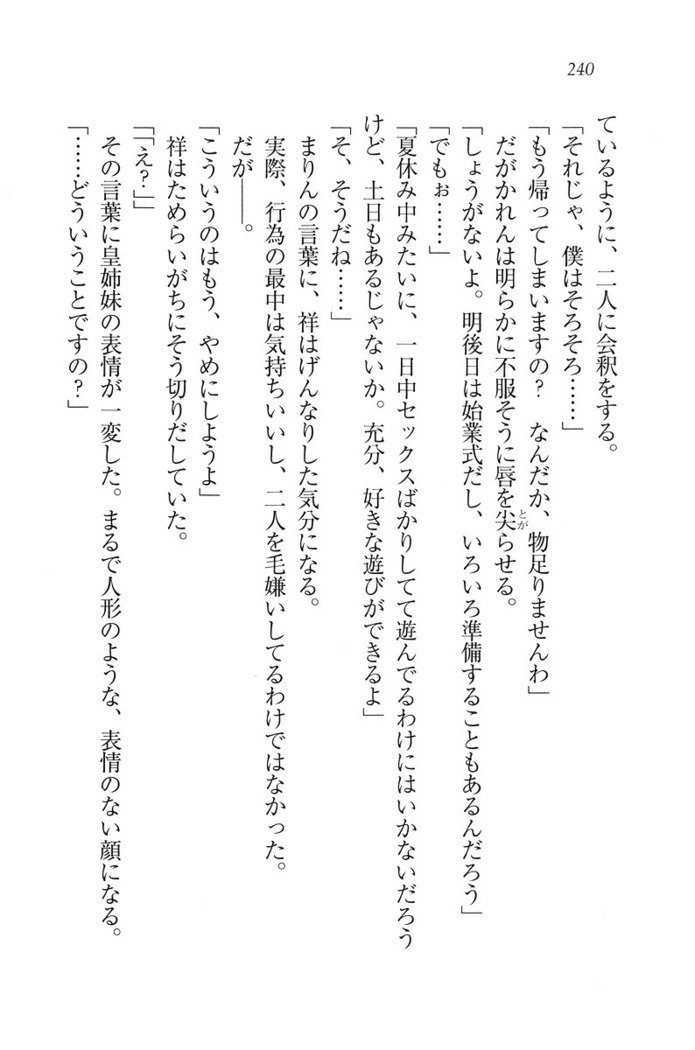 240
ているように、二人に会釈をする。
「それじゃ、僕はそろそろ……」
「もう帰ってしまいますの？　なんだか、物足りませんわ」
だがかれんは明らかに不服そうに唇を尖らせる。
「しょうがないよ。明後日は始業式だし、いろいろ準備することもあるんだろう」
「でもぉ……」
「夏休み中みたいに、一日中セックスばかりしてて遊んでるわけにはいかないだろう
けど、土日もあるじゃないか。充分、好きな遊びができるよ」
「そ、そうだね……」
まりんの言葉に、祥はげんなりした気分になる。
実際、行為の最中は気持ちいいし、二人を毛嫌いしてるわけではなかった。
だが――。
「こういうのはもう、やめにしようよ」
祥はためらいがちにそう切りだしていた。
「「え？」」
その言葉に皇姉妹の表情が一変した。まるで人形のような、表情のない顔になる。
「……どういうことですの？」